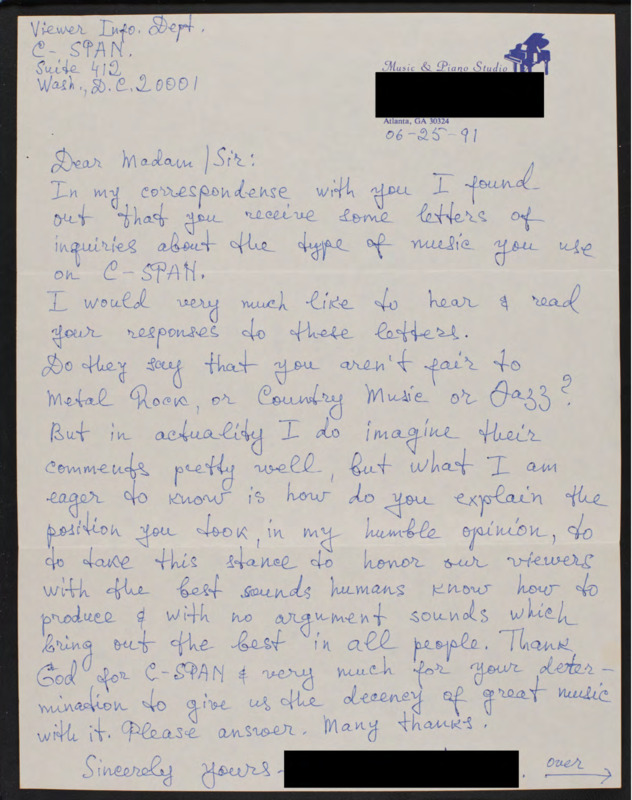 Viewer Info. Dept.
C-SPAN.
Suite 412
Wash., D.C. 20001
Music & Piano Studio
Atlanta, GA 30324
06-25-91
Dear Madam/Sir:
In my correspondense with you I found
out that you receive some letters of
inquiries about the type of music you use
on C-SPAN.
I would very much like to hear & read
your responses to these letters.
Do they say that you aren't fair to
Metal Rock, or Country Music or Jazz?
But in actuality I do imagine their
comments pretty well, but what I am
eager to know is how do you explain the
position you took, in my humble opinion, to
to take this stance to honor our viewers
with the best sounds humans know how to
produce & with no argument sounds which
bring out the best in all people. Thank
God for C-SPAN & very much for your deter-
mination to give us the decency of great music
with it. Please answer. Many thanks.
Sincerely yours-
over